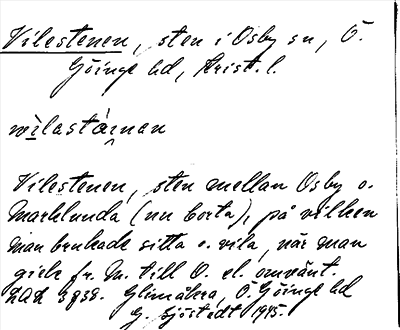 Vilestenen, sten i Osby sn, Ö.
Göinge hd, Krist. l.
wilastainan
Vilestenen, sten mellan Osby o.
Marklunda (nu borta), på vilken
man brukade sitta o. vila, när man
gick fr. M. till O. el. omvänt.
3838. Glimåkra, Ö. Göinge hd
G. Sjöstedt 1945.